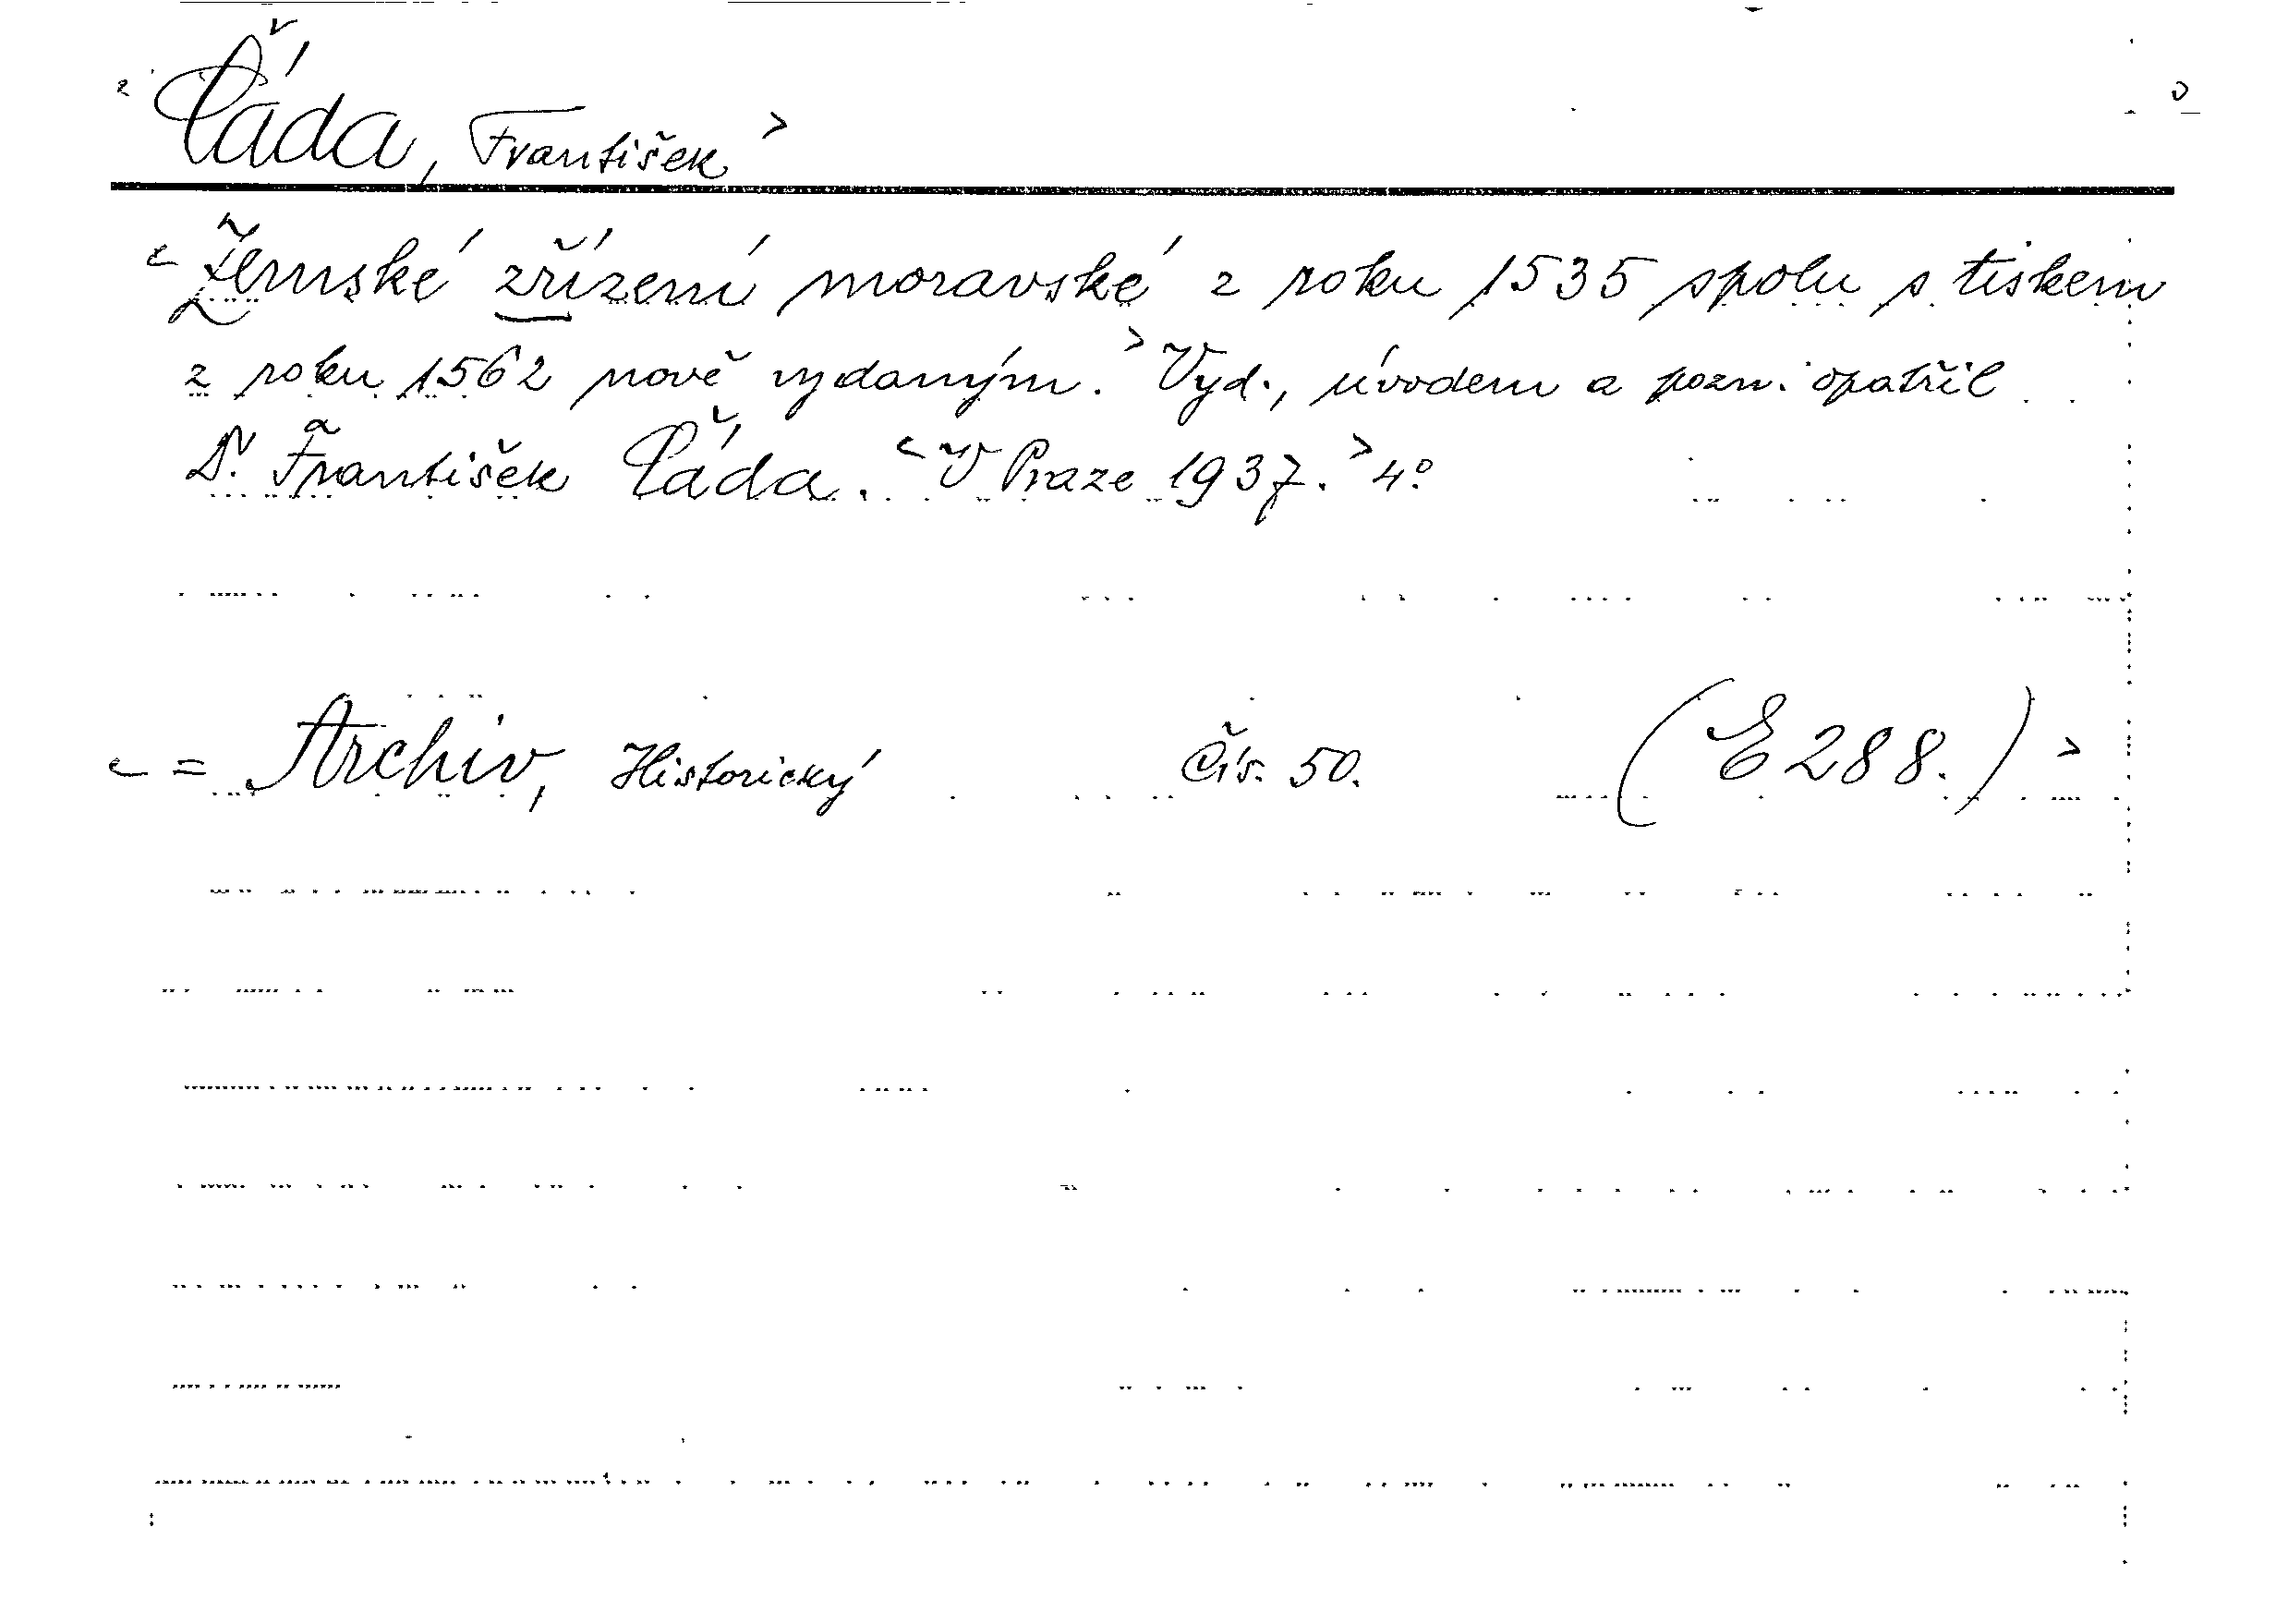 Čáda, František >
< Zemské zřízení moravské z roku 1535 spolu s tiskem
z roku 1562 nově vydaným. > Vyd., úvodem a pozn. opatřil
Dr. František Čáda. < V Praze 1937. > 4°
< = Archiv, Historický Čís. 50. (E 288.) >